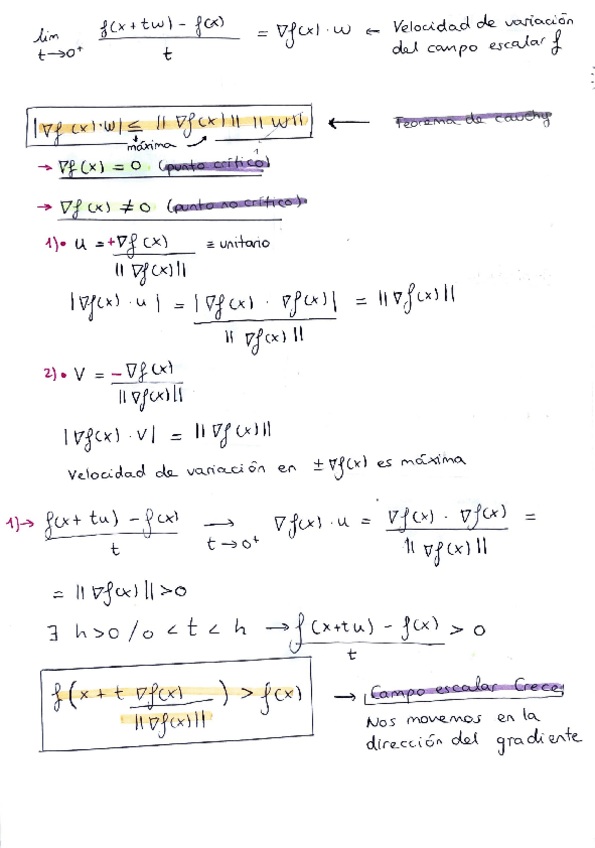 lim t→0⁺ (f(x+tw) - f(x)) / t = ∇f(x)·w ← Velocidad de variación
del campo escalar f
|∇f(x)·w| ≤ ||∇f(x)|| ||w|| ← Teorema de cauchy
máxima 1
→ ∇f(x) = 0 (punto crítico)
→ ∇f(x) ≠ 0 (punto no crítico)
1)• u = +∇f(x) / ||∇f(x)|| ≡ unitario
|∇f(x)·u| = |∇f(x)·∇f(x)| / ||∇f(x)|| = ||∇f(x)||
2)• V = -∇f(x) / ||∇f(x)||
|∇f(x)·V| = ||∇f(x)||
Velocidad de variación en ±∇f(x) es máxima
1)→ (f(x+tu) - f(x)) / t → t→0⁺ ∇f(x)·u = ∇f(x)·∇f(x) / ||∇f(x)|| =
= ||∇f(x)|| >0
∃ h>0 / 0<t<h → (f(x+tu) - f(x)) / t > 0
f(x+t ∇f(x) / ||∇f(x)||) > f(x) → Campo escalar Crece
Nos movemos en la
dirección del gradiente